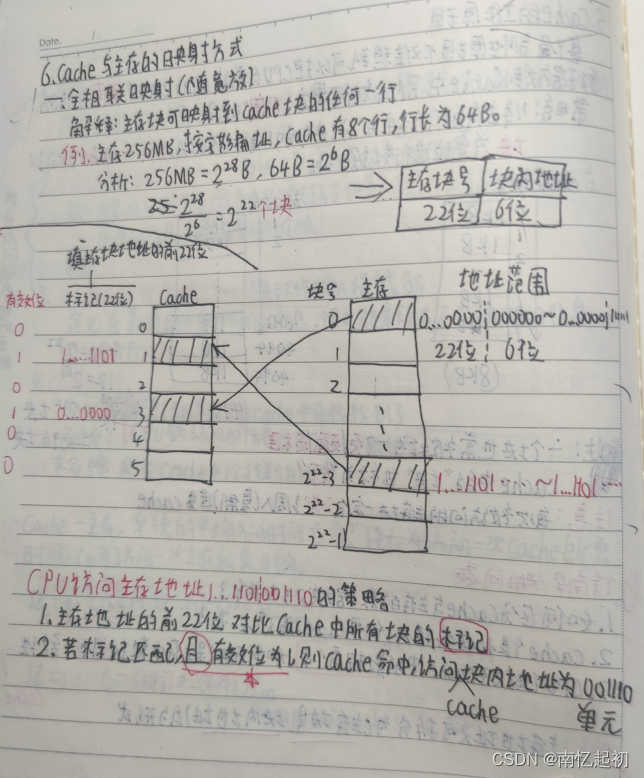 Date.
6.Cache与主存的映射方式
一.全相联映射(随意放)
解释:主存块可映射到cache块的任何一行
例:主存256MB,按字节编址,Cache有8个行,行长为64B。
分析: 256MB=2^28B, 64B=2^6B
2^28/2^6=2^22个块
主存块号 块内地址
22位 6位
填主存块地址的前22位
有效位 标记(22位) Cache 块号 主存 地址范围
0 0 0 0...0000 000000~0...0000 11111
1 1...1101 1 1 22位 6位
0 2 2
1 0...0000 3
0 4 2^22-3 1...1101 ... ~1...1101 ...
0 5 2^22-2
2^22-1
CPU访问主存地址1...1101001110的策略
1.主存地址的前22位对比Cache中所有块的标记
2.若标记匹配且有效位为1,则Cache命中,访问块内地址为001110
cache 单元
CSDN @南忆起初